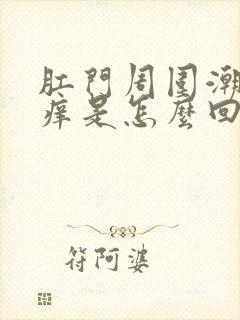 肛門周圍潮
痒是怎麼回
符阿婆